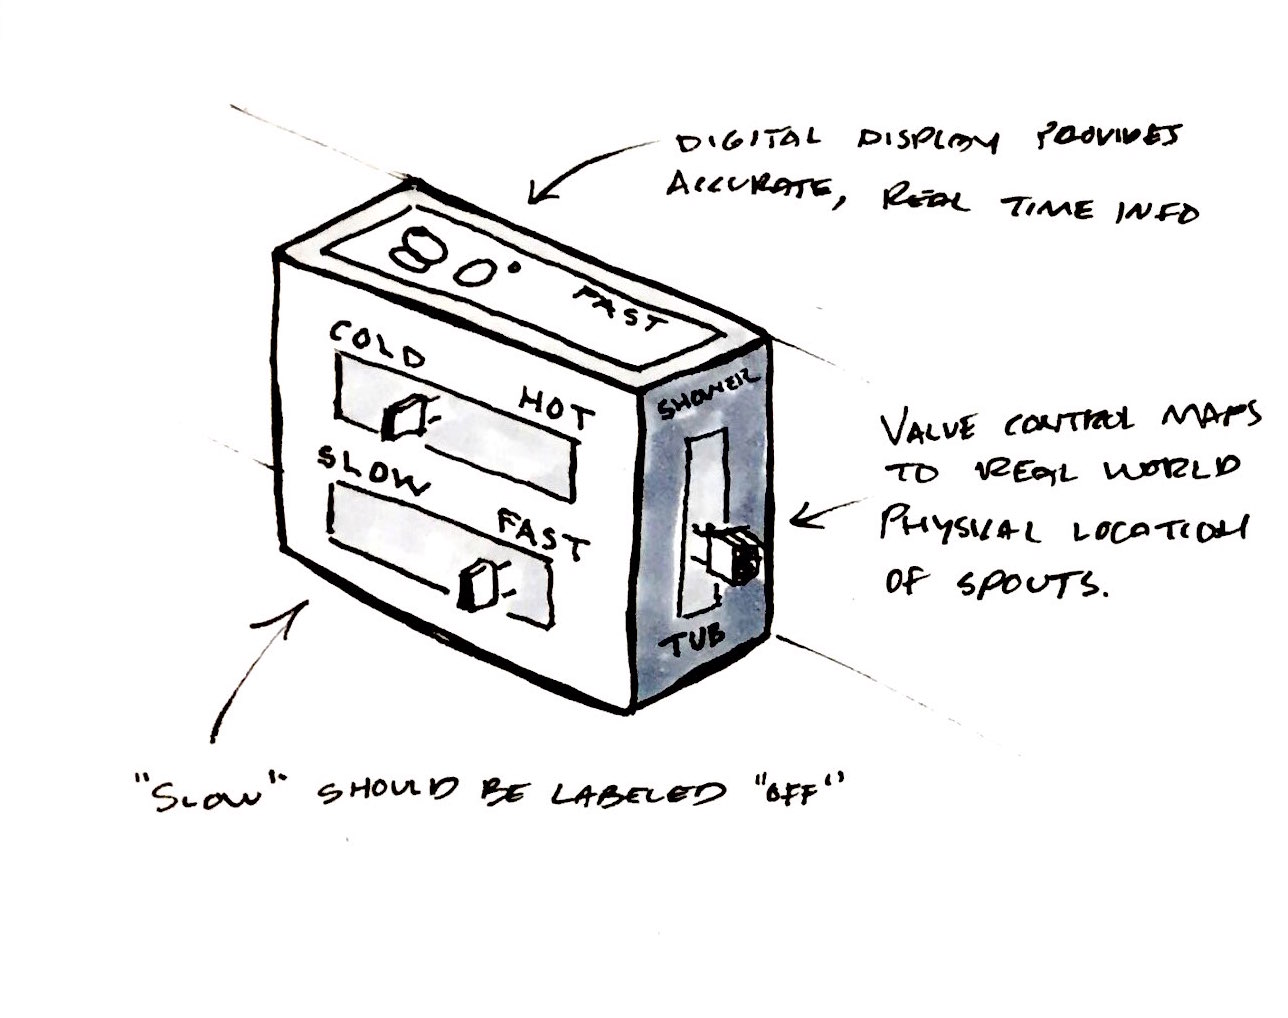 DIGITAL DISPLAY PROVIDES
ACCURATE, REAL TIME INFO
80° FAST
COLD HOT
SLOW FAST
SHOWER
TUB
VALUE CONTROL MAPS
TO REAL WORLD
PHYSICAL LOCATION
OF SPOUTS.
"SLOW" SHOULD BE LABELED "OFF"